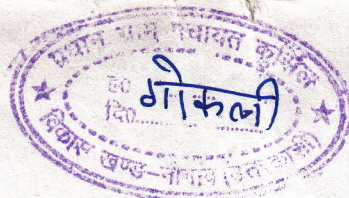 प्रधान ग्राम पंचायत कुमोला
ह०
गोकली
दि०
विकास खण्ड-नौगांव (उत्तरकाशी)